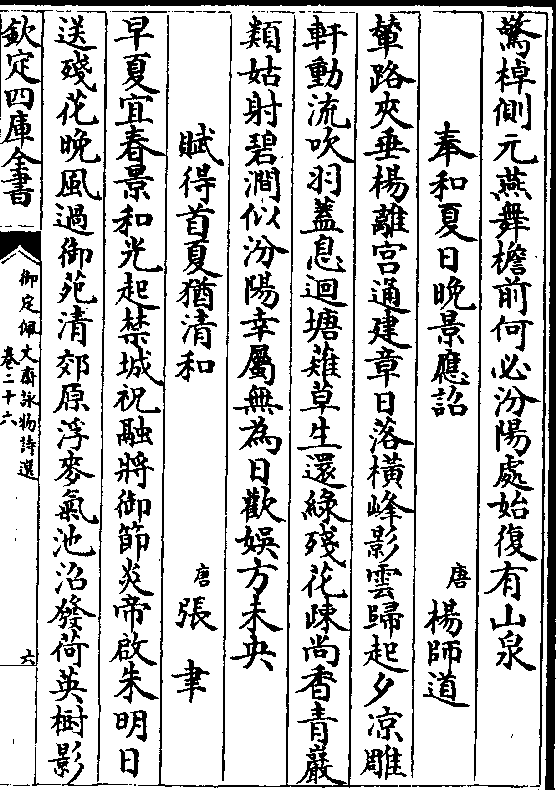 驚棹側元燕舞檐前何必汾陽處始復有山泉
奉和夏日晚景應詔 唐 楊師道
輦路夾垂楊離宮通建章日落橫峰影雲歸起夕凉雕
軒動流吹羽蓋息迴塘薙草生還綠殘花疎尚香青巖
類姑射碧澗似汾陽幸屬無為日歡娛方未央
賦得首夏猶清和 唐 張聿
早夏宜春景和光起禁城祝融將御節炎帝啟朱明日
送殘花晚風過御苑清郊原浮麥氣池沼發荷英樹影
欽定四庫全書
御定佩文齋詠物詩選
卷二十六
六